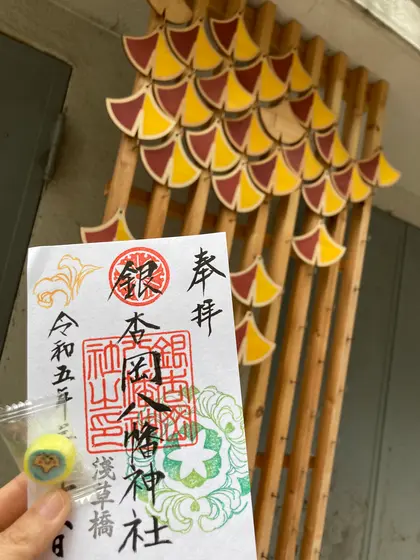 奉拝
銀杏岡八幡神社
浅草橋
令和五年